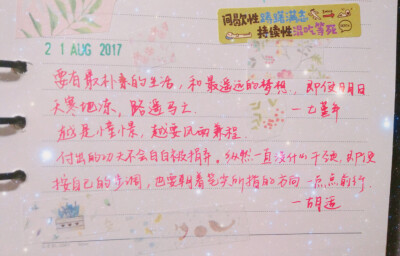 间歇性踌躇满志
持续性混吃等死
21 AUG 2017
要有最朴素的生活，和最遥远的梦想，即使明日
天寒地冻，路遥马亡
—七堇年
越是憧憬，越要风雨兼程
付出的功夫不会白白被捐弃。纵然一直没什么千頭，即使
按自己的步调，也要朝着莫大所指的方向一点点前行
—胡适